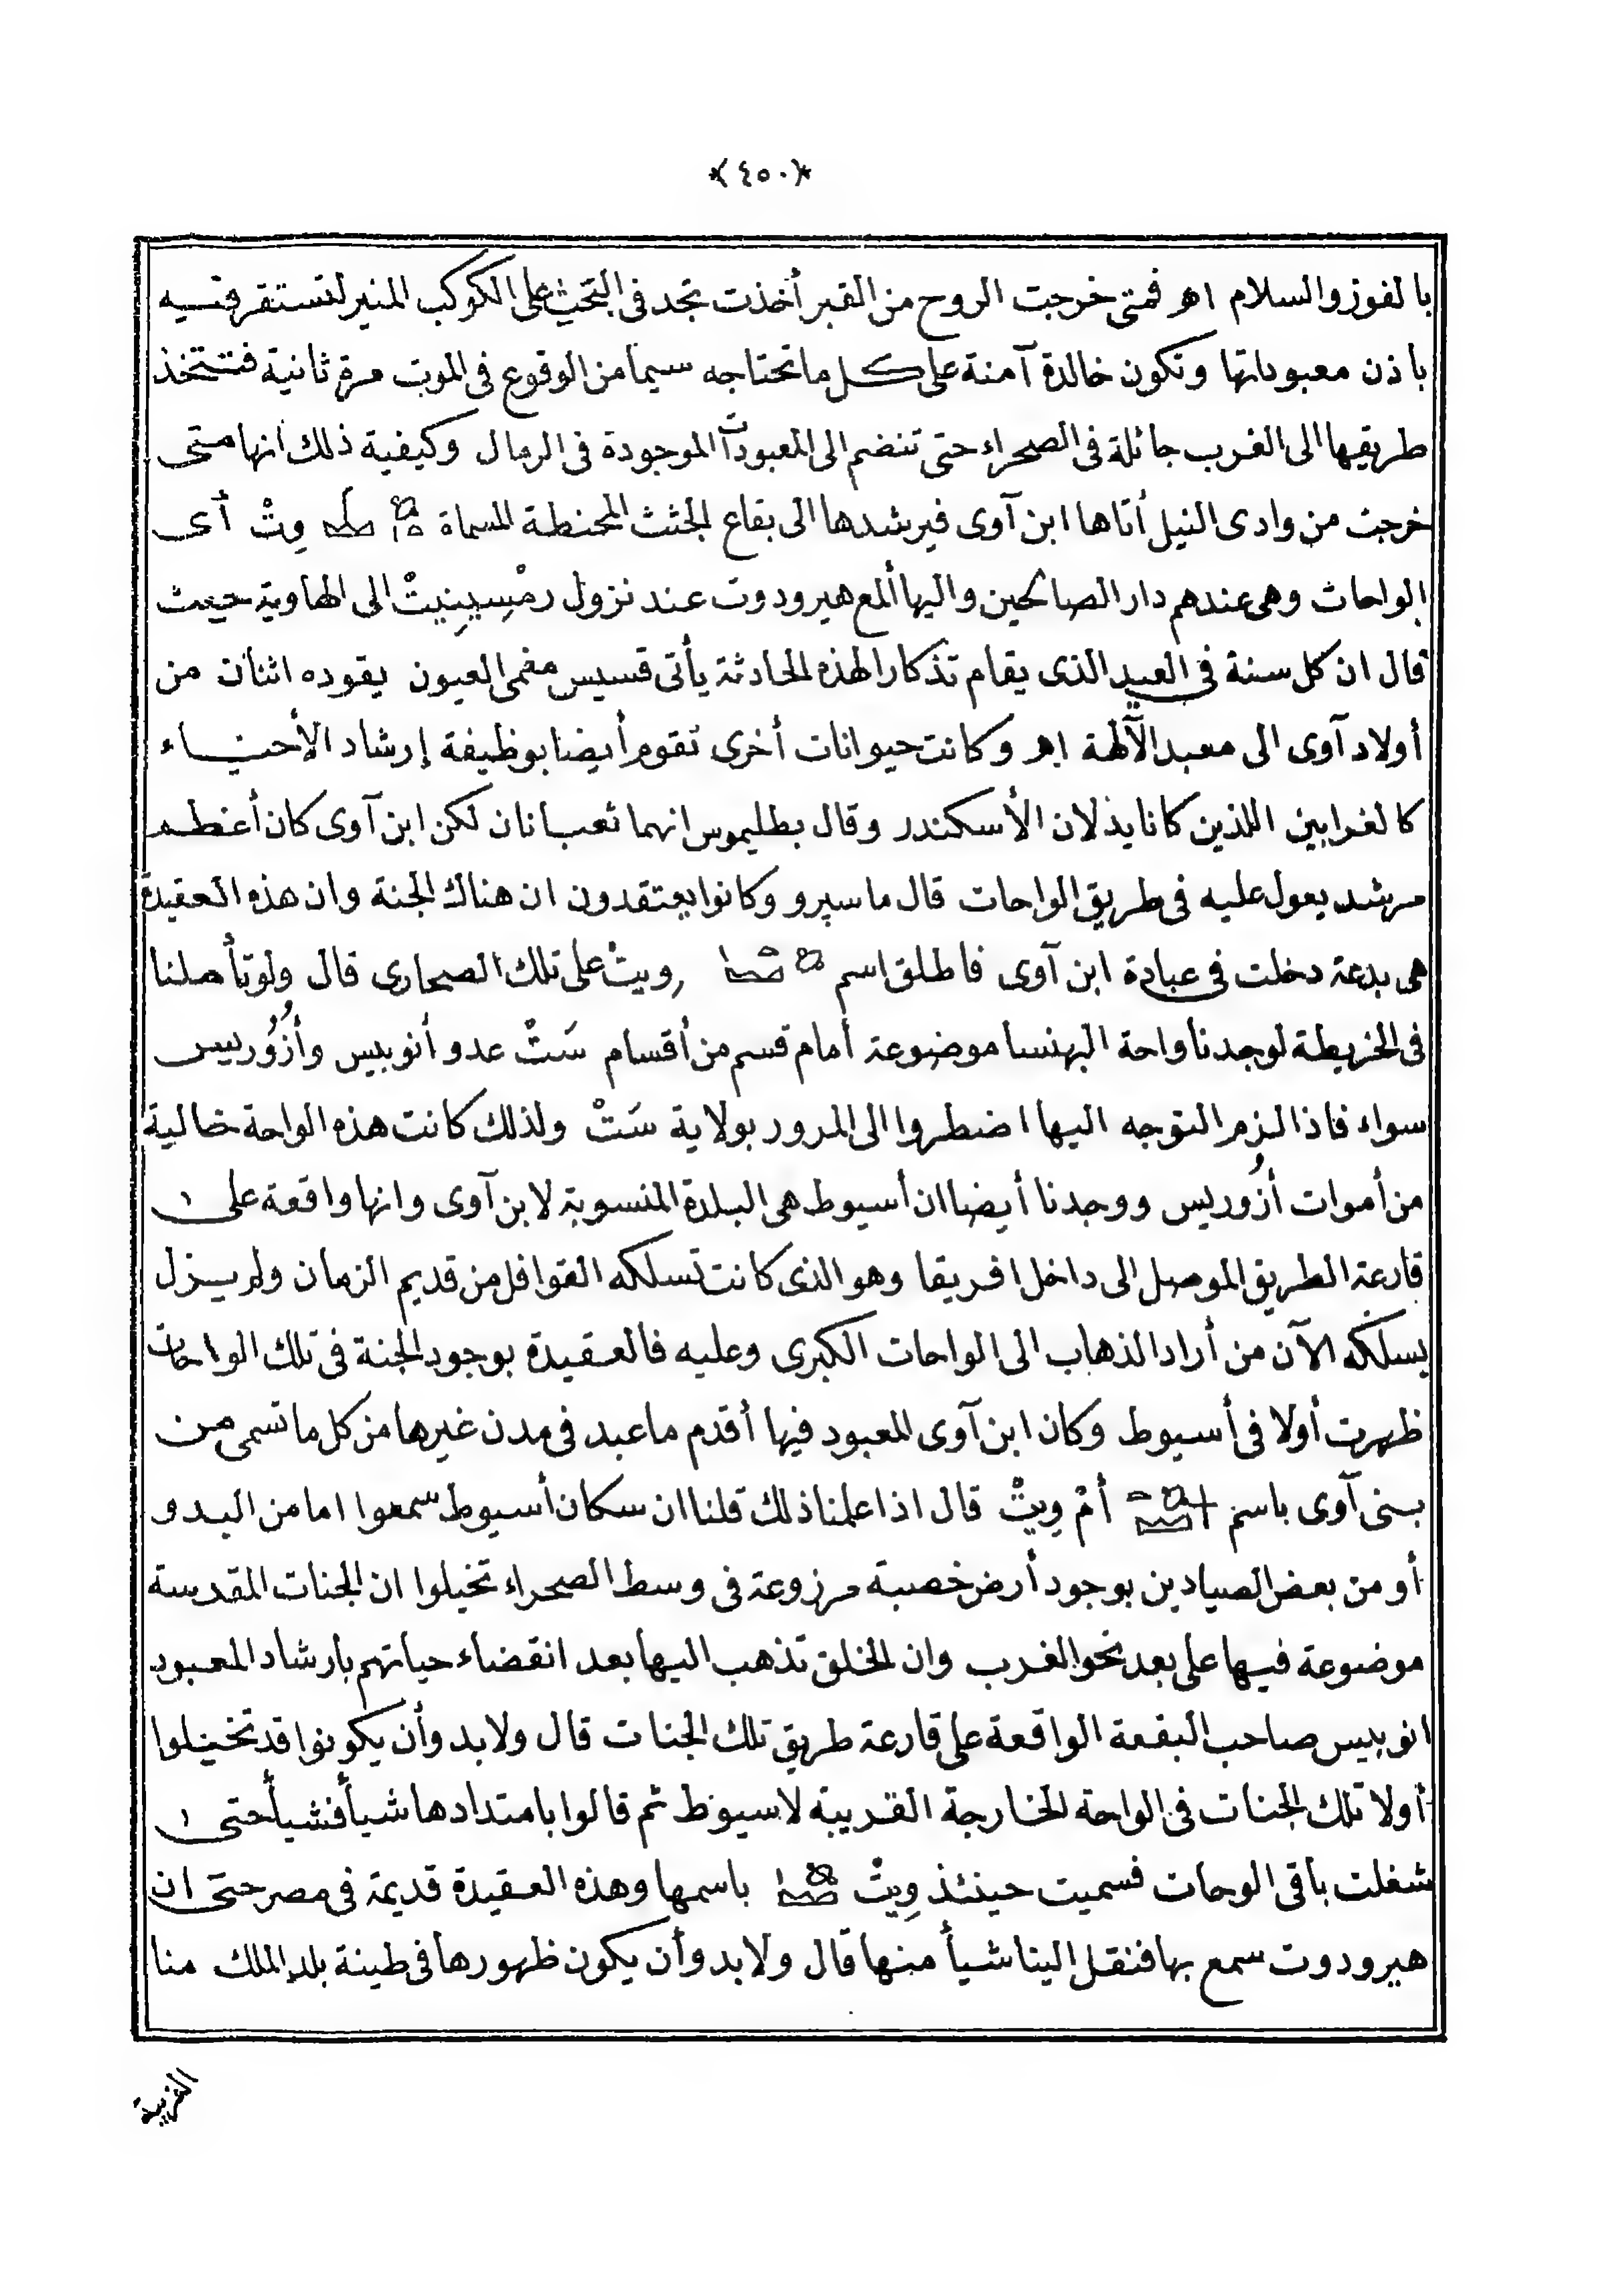 ﴿٤٥٠﴾
بالفوز والسلام اهـ فمتى خرجت الروح من القبر أخذت تجد فى البحث على الكوكب المنير لتستقر فيه
باذن معبوداتها وتكون خالدة آمنة على كل ما تحتاجه سيما من الوقوع فى الموت مرة ثانية فتتخذ
طريقها الى الغرب جائلة فى الصحراء حتى تنضم الى المعبودات الموجودة فى الرمال وكيفية ذلك انها متى
خرجت من وادى النيل أتاها ابن آوى فيرشدها الى بقاع الجثث المحنطة المسماة وِتْ أى
الواحات وهى عندهم دار الصالحين واليها ألمع هيرودوت عند نزول رمْسِينِيتْ الى الهاوية حيث
قال ان كل سنة فى العيد الذى يقام تذكارا لهذه الحادثة يأتى قسيس مغمى العيون يقوده اثنان من
أولاد آوى الى معبد الآلهة اهـ وكانت حيوانات أخرى تقوم أيضا بوظيفة إرشاد الأحياء
كالغرابين اللذين كانا يدلان الأسكندر وقال بطليموس انهما ثعبانان لكن ابن آوى كان أعظم
مرشد يعول عليه فى طريق الواحات قال ماسپرو وكانوا يعتقدون ان هناك الجنة وان هذه العقيدة
هى بدعة دخلت فى عبادة ابن آوى فاطلق اسم وِيتْ على تلك الصحارى قال ولو تأملنا
فى الخريطة لوجدنا واحة البهنسا موضوعة أمام قسم من أقسام سَتْ عدو أنوبيس وأزُورُيس
سواء فاذا لزم التوجه اليها اضطروا الى المرور بولاية سَتْ ولذلك كانت هذه الواحة خالية
من أموات أزُوريس ووجدنا أيضا ان أسيوط هى البلدة المنسوبة لابن آوى وانها واقعة على
قارعة الطريق الموصل الى داخل افريقا وهو الذى كانت تسلكه القوافل من قديم الزمان ولم يزل
يسلكه الآن من أراد الذهاب الى الواحات الكبرى وعليه فالعقيدة بوجود الجنة فى تلك الواحات
ظهرت أولا فى أسيوط وكان ابن آوى المعبود فيها أقدم ما عبد فى مدن غيرها من كل ما تسمى من
بنى آوى باسم أمْ وِيتْ قال اذا علمنا ذلك قلنا ان سكان أسيوط سمعوا اما من البدو
أو من بعض الصيادين بوجود أرض خصبة مرزوعة فى وسط الصحراء تخيلوا ان الجنات المقدسة
موضوعة فيها على بعد نحو الغرب وان الخلق تذهب اليها بعد انقضاء حياتهم بارشاد المعبود
انوبيس صاحب البقعة الواقعة على قارعة طريق تلك الجنات قال ولابد وأن يكونوا قد تخيلوا
أولا تلك الجنات فى الواحة الخارجة القريبة لاسيوط ثم قالوا بامتدادها شيأ فشيأ حتى
شغلت باقى الوحات فسميت حينئذ وِيتْ باسمها وهذه العقيدة قديمة فى مصر حتى ان
هيرودوت سمع بها فنقل الينا شيأ منها قال ولابد وأن يكون ظهورها فى طينة بلد الملك منا
الغربية